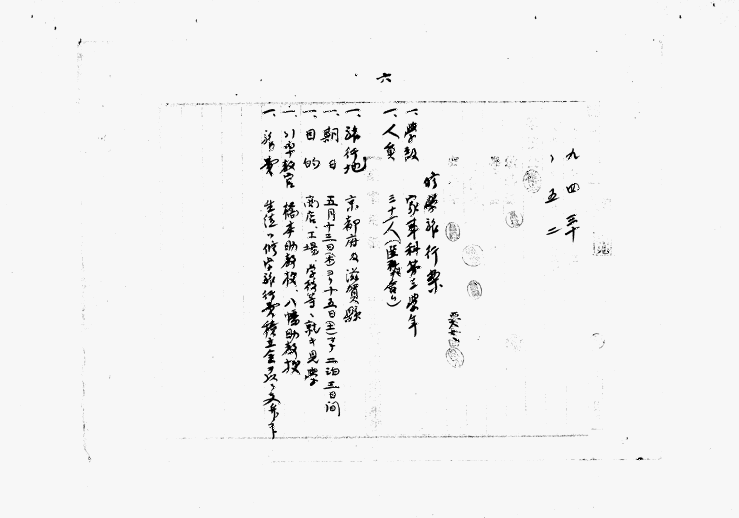 六
九、四、三十
、五、二
修学旅行案
一、学級 家事科第三学年
一、人員 三十二人
一、旅行地 京都府及滋賀縣
一、期日 五月十三日(木)ヨリ十五日(土)マデ二泊三日間
一、目的 商店、工場、学校等ニ就キ見学
一、引率教官 橋本助教授、八幡助教授
一、旅費 生徒ハ修学旅行費積立金ヨリ支弁ス